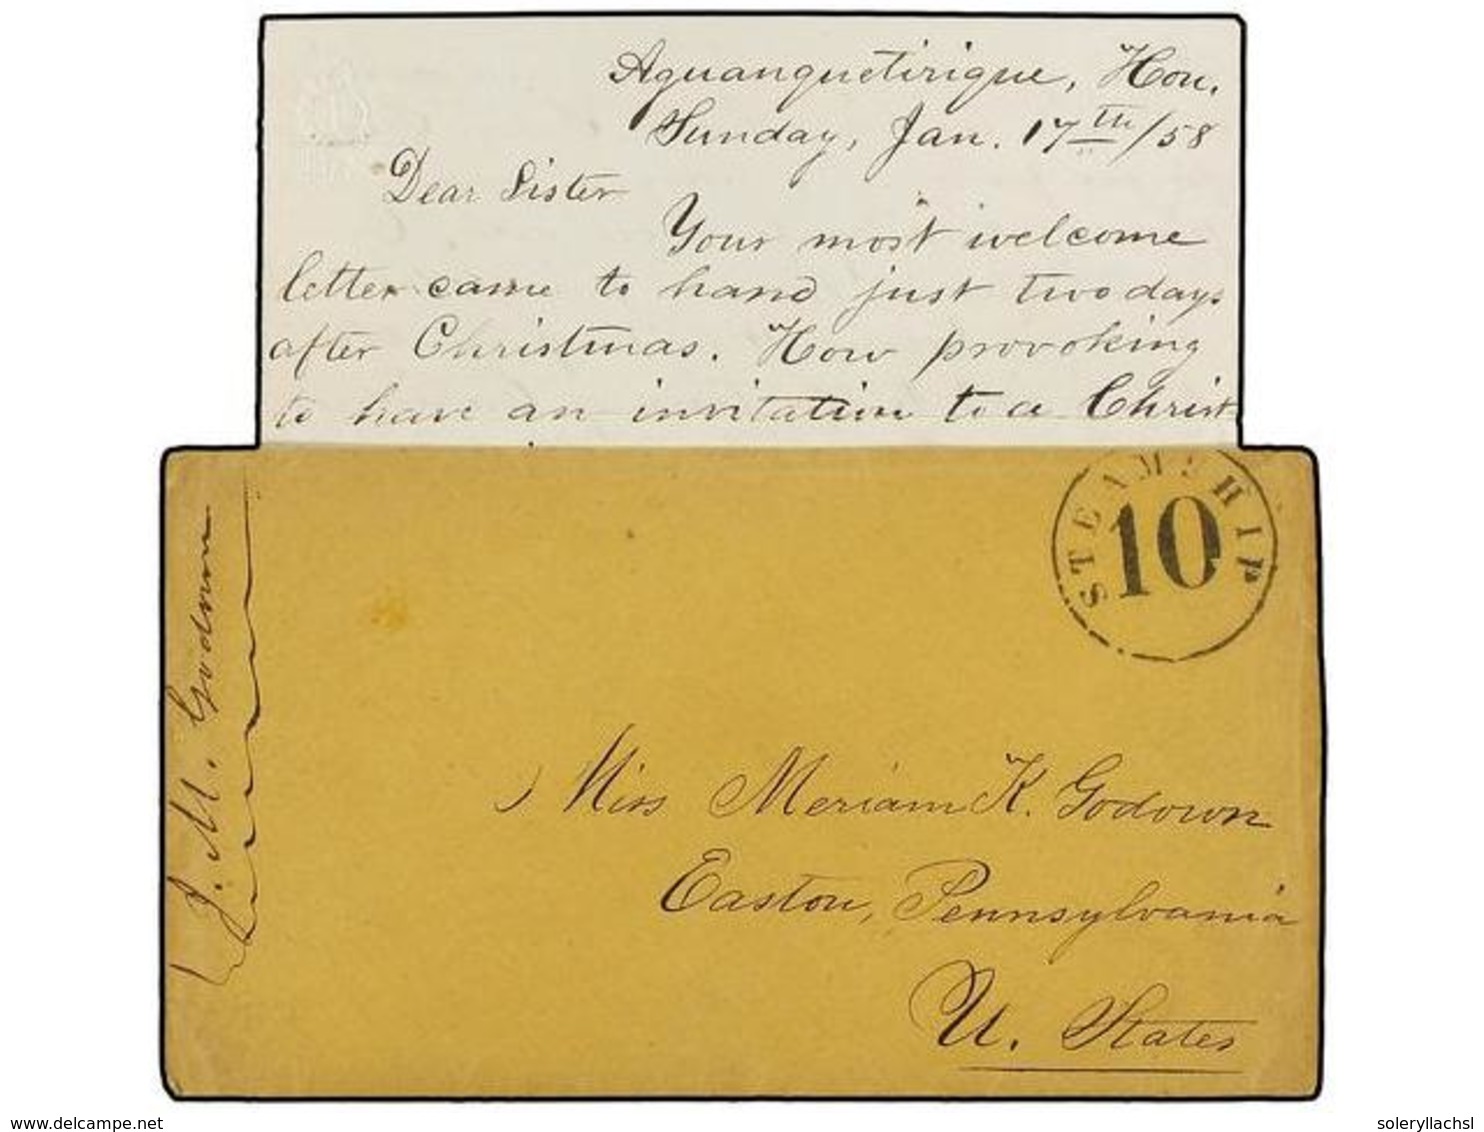 Aguanqueterique, Hon.
Sunday, Jan. 17th/58
Dear Sister
Your most welcome
letter came to hand just two days
after Christmas. How provoking
to have an invitation to a Christ
STEAMSHIP
10
J. M. Godown
Miss Meriam K. Godown
Easton, Pennsylvania
U. States
www.delcampe.net
soleryllachsl